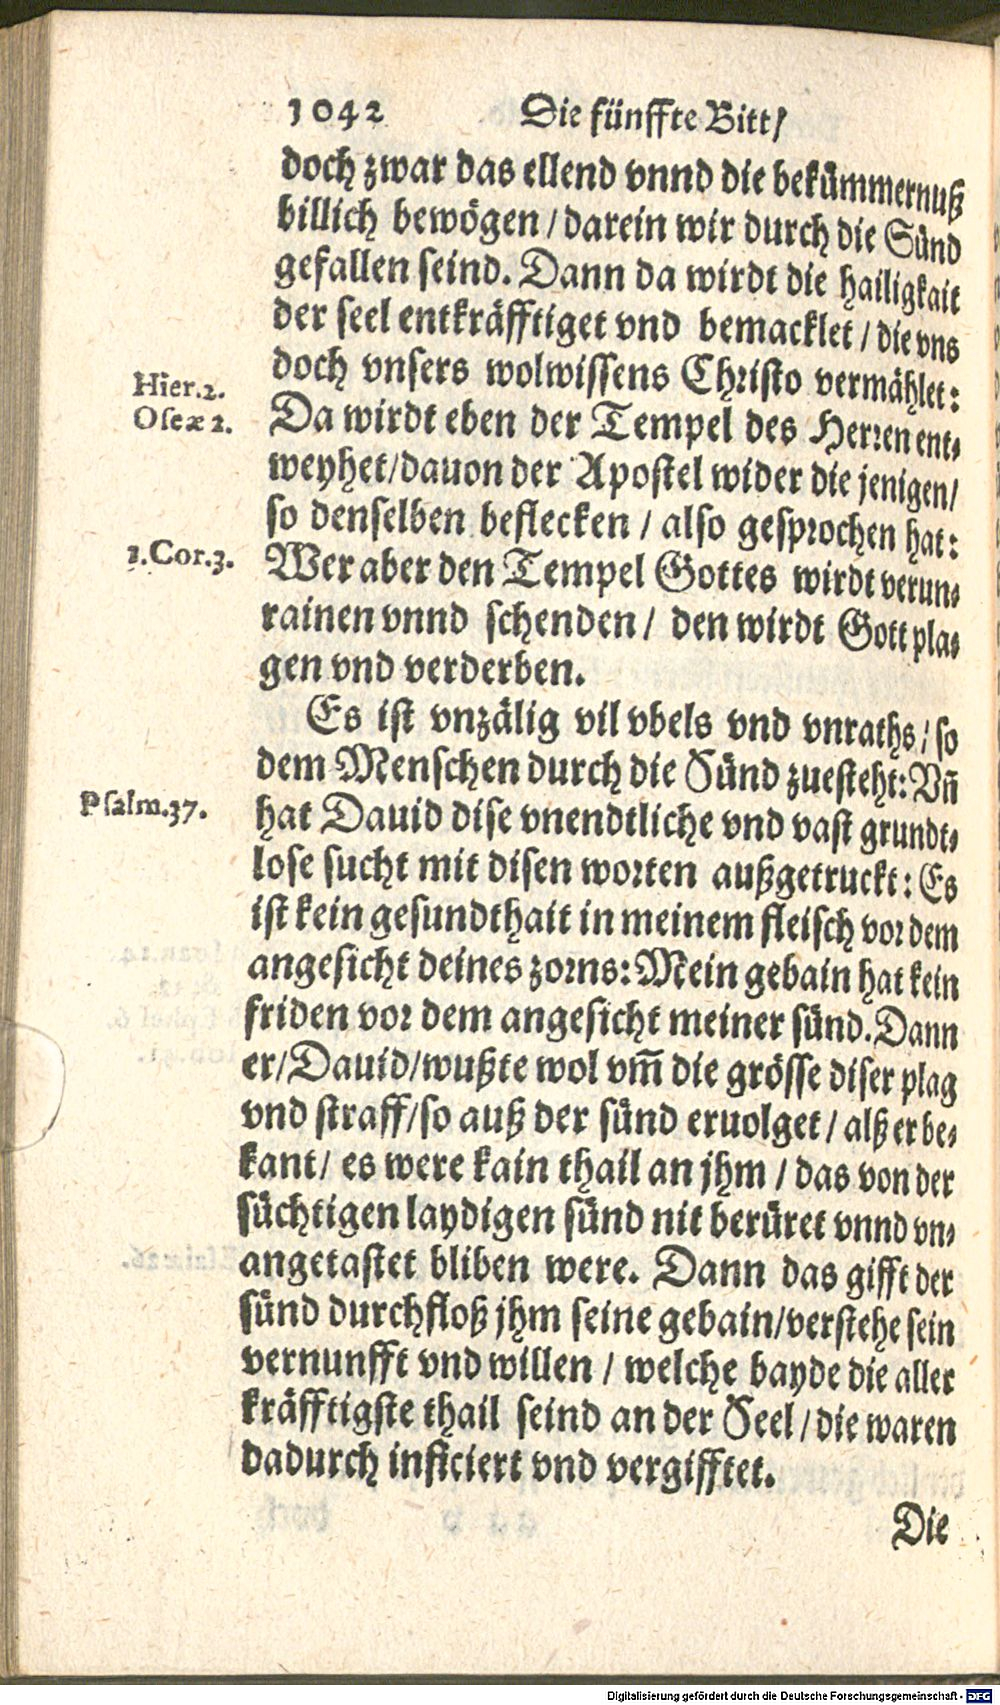 1042 Die fünffte Bitt/
doch zwar das ellend vnnd die bekümmernuß
billich bewögen / darein wir durch die Sünd
gefallen seind. Dann da wirdt die hailigkait
der seel entkräfftiget vnd bemacklet / die vns
doch vnsers wolwissens Christo vermählet:
Hier.2.
Da wirdt eben der Tempel des Herren ent-
Oseæ 2.
weyhet/dauon der Apostel wider die jenigen/
so denselben beflecken / also gesprochen hat:
1.Cor.3.
Wer aber den Tempel Gottes wirdt verun-
rainen vnnd schenden / den wirdt Gott pla-
gen vnd verderben.
Es ist vnzälig vil vbels vnd vnraths / so
dem Menschen durch die Sünd zuesteht: Vñ
Psalm.37.
hat Dauid dise vnendtliche vnd vast grundt-
lose sucht mit disen worten außgetruckt: Es
ist kein gesundthait in meinem fleisch vor dem
angesicht deines zorns: Mein gebain hat kein
friden vor dem angesicht meiner sünd. Dann
er/Dauid/wußte wol vm̃ die grösse diser plag
vnd straff/so auß der sünd eruolget / alß er be-
kant / es were kain thail an jhm / das von der
süchtigen laydigen sünd nit berüret vnnd vn-
angetastet bliben were. Dann das gifft der
sünd durchfloß jhm seine gebain/verstehe sein
vernunfft vnd willen / welche bayde die aller
kräfftigste thail seind an der Seel / die waren
dadurch inficiert vnd vergifftet.
Die
Digitalisierung gefördert durch die Deutsche Forschungsgemeinschaft - DFG